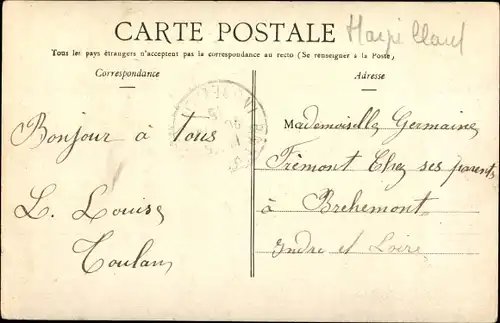 CARTE POSTALE
Tous les pays étrangers n'acceptent pas la correspondance au recto (Se renseigner à la Poste)
Correspondance
Adresse
Bonjour à Tous
L. Louise
Toulan
Mademoiselle Germaine
Frémont Chez ses parents
à Brehemont
Indre et Loire